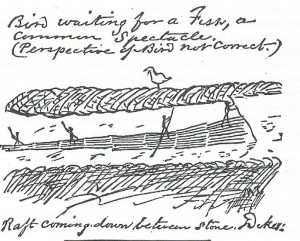 Bird waiting for a Fish, a
Common Spectacle.
(Perspective of Bird not Correct.)
Raft coming down between stone